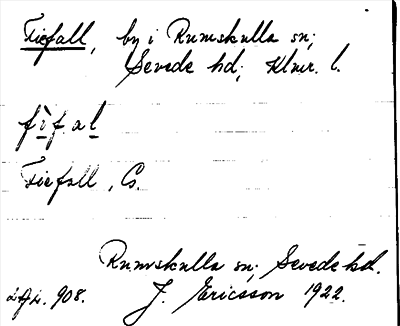 Fiefall, by i Rumskulla sn;
Sevede hd; Klmr. l.
fìfal
Fiefall, Cs.
Rumskulla sn; Sevede hd.
908. J. Ericsson 1922.